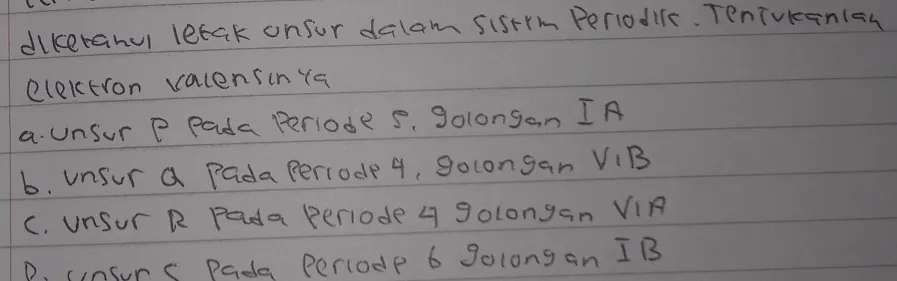 diketahui letak unsur dalam sistim Periodik. Tentukanlah
elektron valensinya
a. unsur P Pada Periode 5, golongan IA
b. unsur Q Pada Periode 4, golongan VIB
c. unsur R Pada Periode 4 golongan VIA
D. unsur S Pada Periode 6 golongan IB